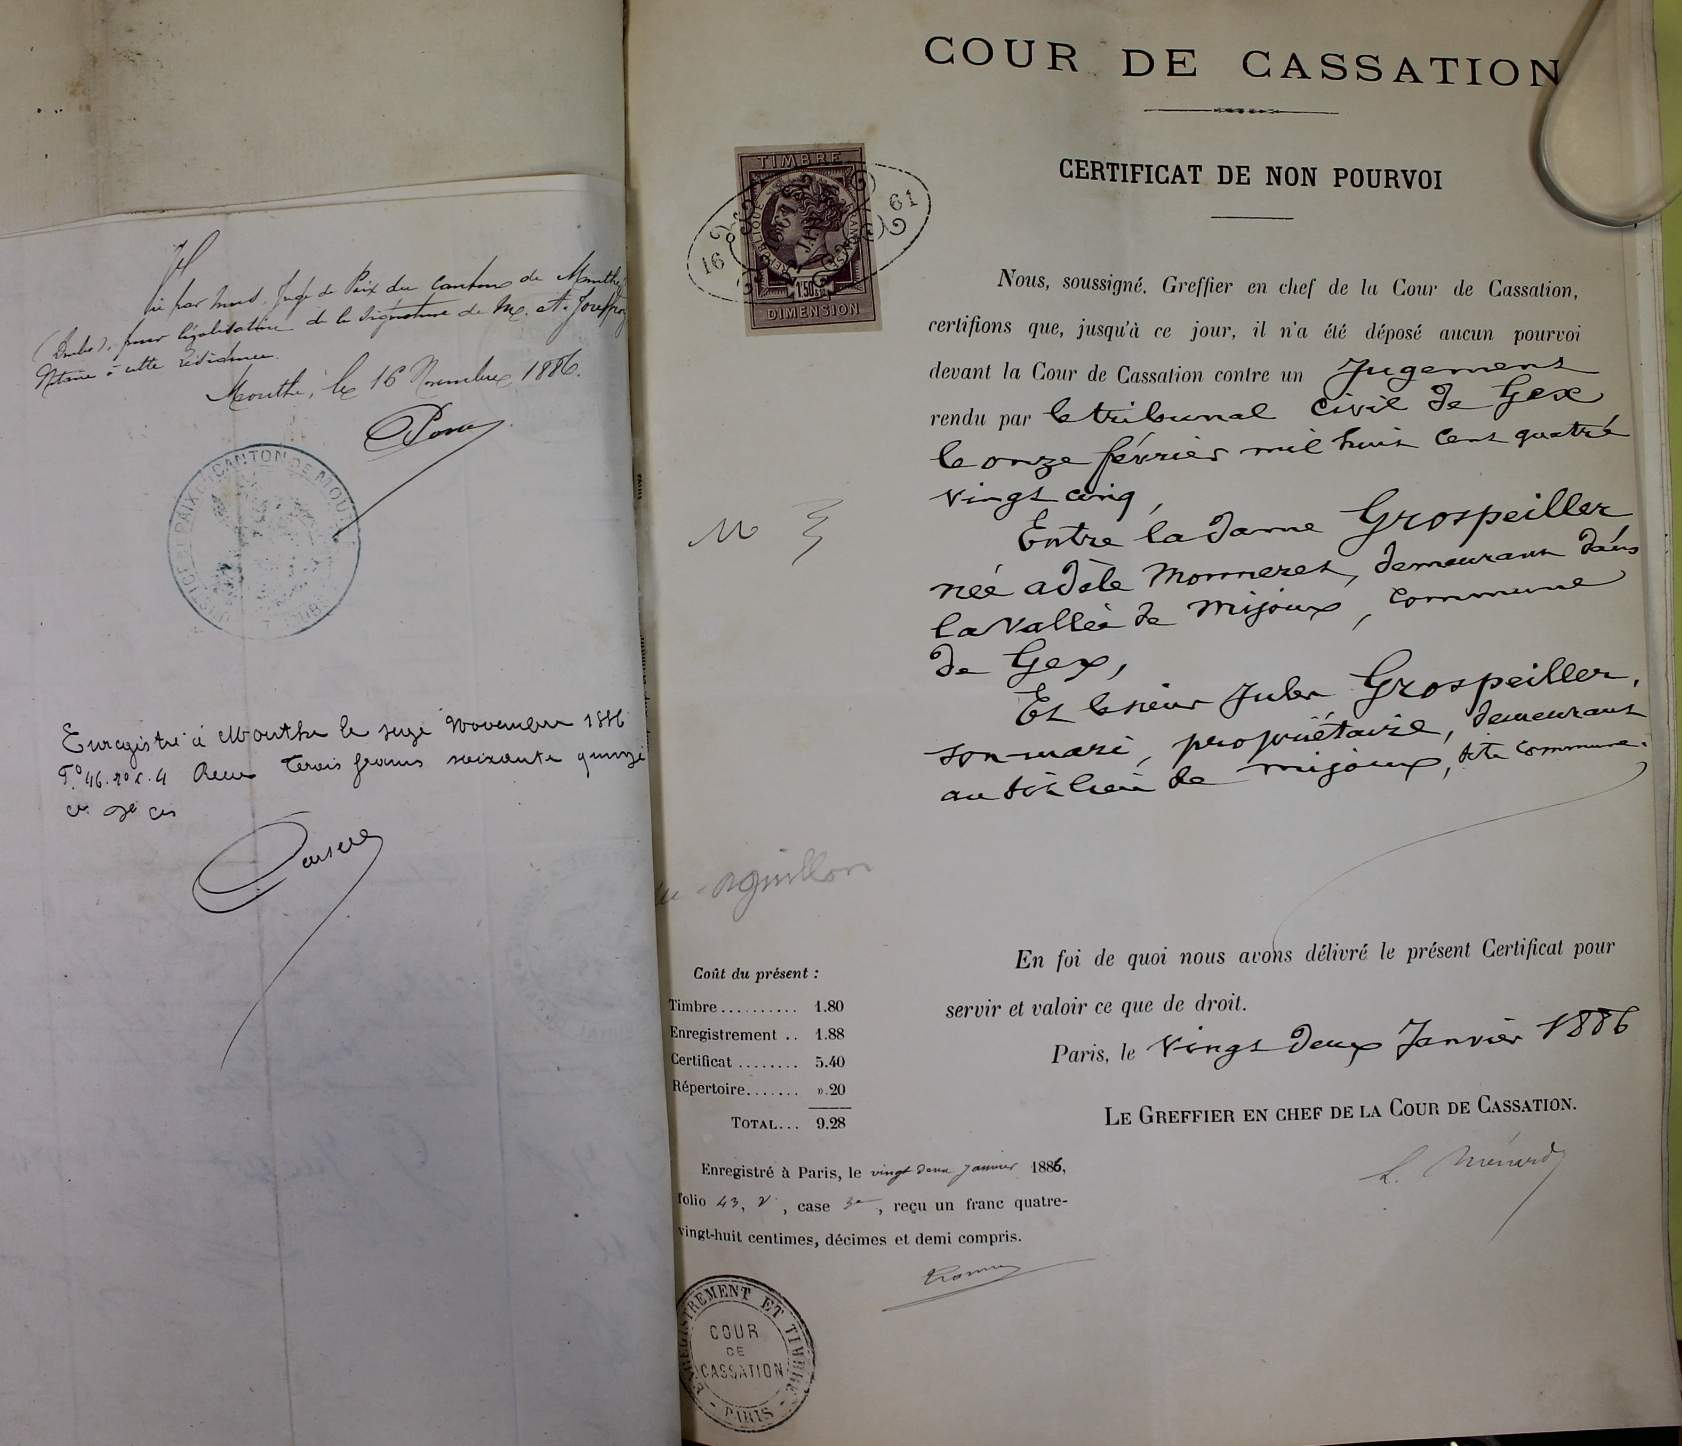 Vu par nous, Juge de Paix du canton de Mouthe
(Doubs), pour légalisation de la signature de Me. A. Jouffroy
Notaire à cette résidence.
Mouthe, le 16 Novembre 1886.
JUSTICE DE PAIX CANTON DE MOUTHE
Enregistré à Mouthe le seize Novembre 1886
F° 46. r° c. 4 Reçu trois francs soixante quinze
COUR DE CASSATION
CERTIFICAT DE NON POURVOI
TIMBRE
RÉPUBLIQUE FRANÇAISE
1f50c
DIMENSION
16
61
Nous, soussigné, Greffier en chef de la Cour de Cassation,
certifions que, jusqu'à ce jour, il n'a été déposé aucun pourvoi
devant la Cour de Cassation contre un Jugement
rendu par le tribunal Civil de Gex
le onze février mil huit cent quatre
vingt cinq,
Entre la dame Grospeiller
née adèle Monneret, demeurant dans
la Vallée de Mijoux, commune
de Gex,
Et le sieur Jules Grospeiller,
son mari, propriétaire, demeurant
au dit lieu de mijoux, dite commune.
aguillon
En foi de quoi nous avons délivré le présent Certificat pour
servir et valoir ce que de droit.
Paris, le vingt deux Janvier 1886
LE GREFFIER EN CHEF DE LA COUR DE CASSATION.
L. Ménard
Coût du présent :
Timbre.......... 1.80
Enregistrement .. 1.88
Certificat ........ 5.40
Répertoire....... ».20
TOTAL... 9.28
Enregistré à Paris, le vingt deux Janvier 1886,
folio 43, v°, case 3e, reçu un franc quatre-
vingt-huit centimes, décimes et demi compris.
ENREGISTREMENT ET TIMBRE
COUR
DE
CASSATION
- PARIS -